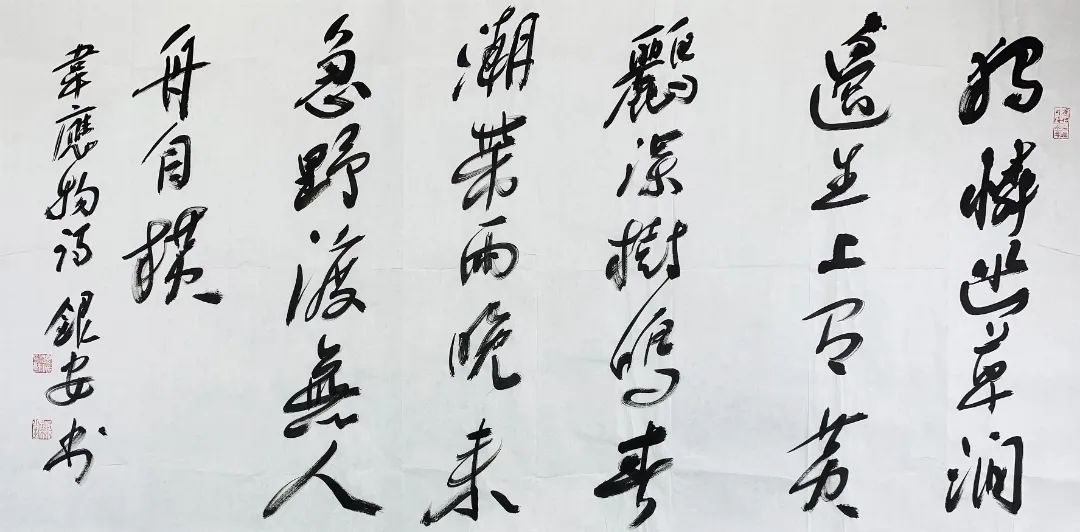 獨憐幽草澗
邊生上有黄
鸝深樹鳴春
潮帶雨晚来
急野渡無人
舟自横
韋應物詩 銀安书